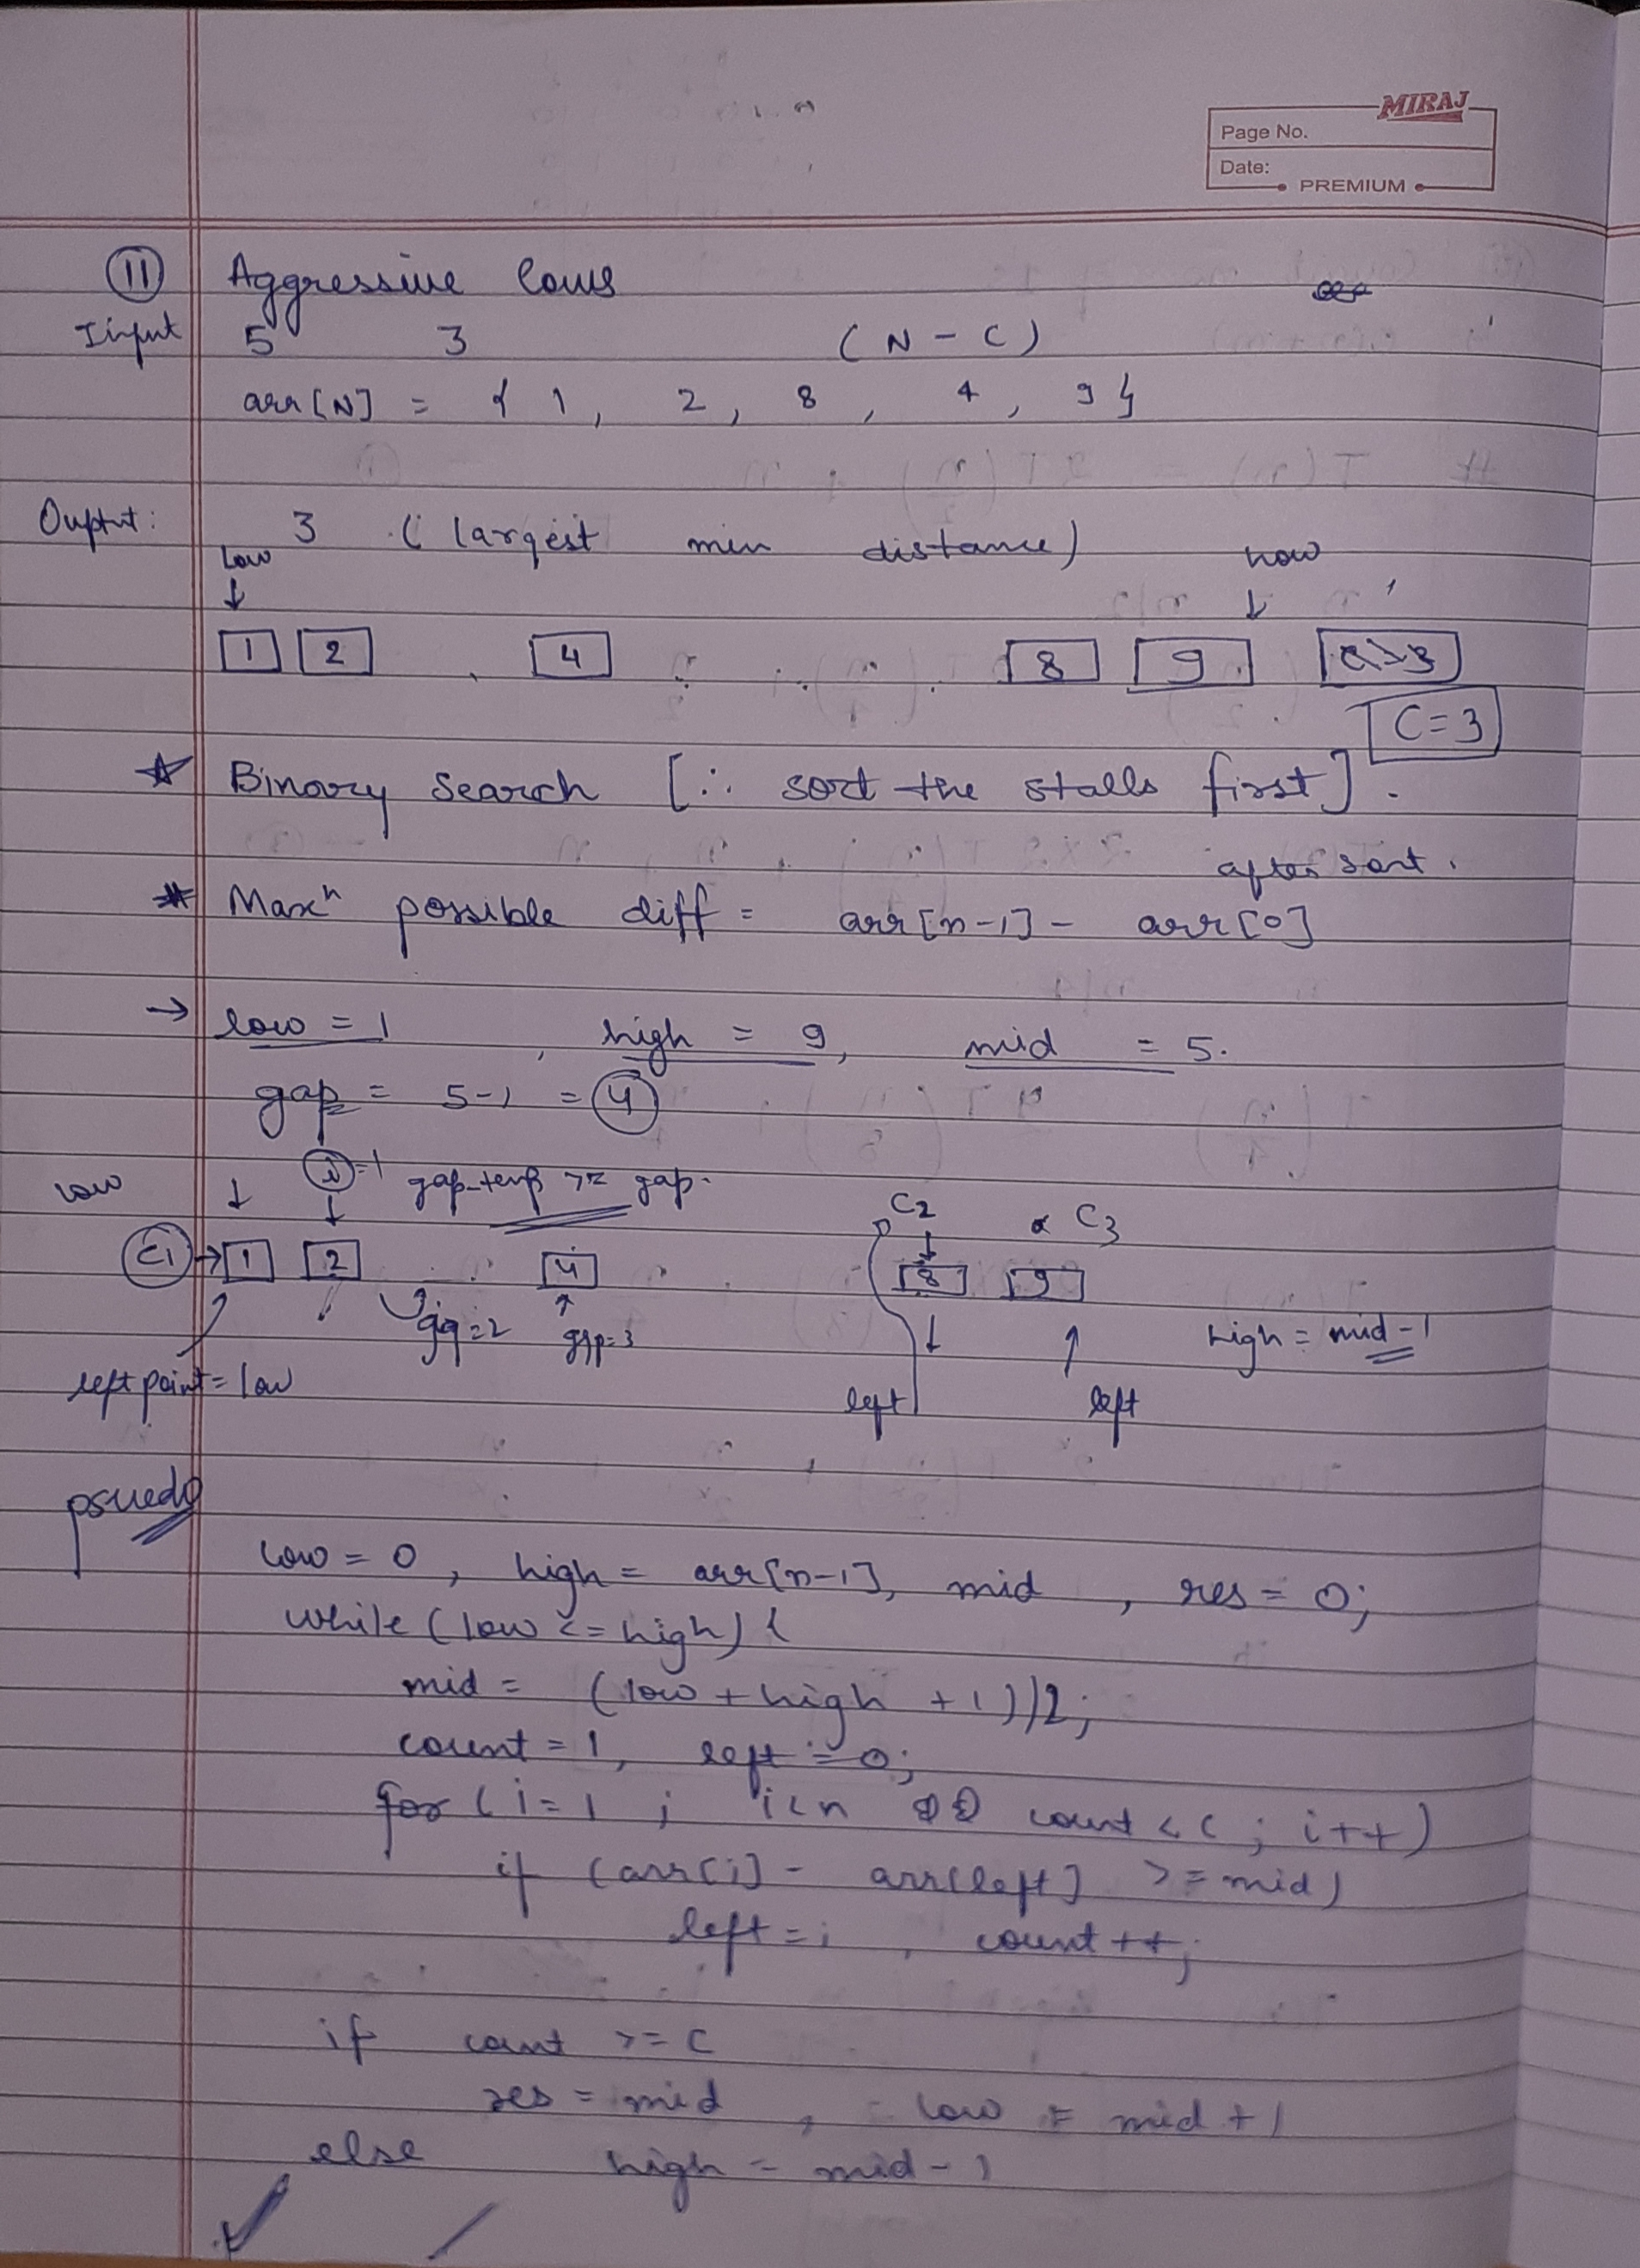 MIRAJ
Page No.
Date:
PREMIUM
11 Aggressive Cows
Input 5 3 (N - C)
arr[N] = { 1, 2, 8, 4, 9 }
Ouptut: 3 (largest min distance)
low
1 2 4 8 9
C=3
☆ Binary Search [∴ sort the stalls first].
after sort.
# Maxⁿ possible diff = arr[n-1] - arr[0]
→ low = 1, high = 9, mid = 5.
gap = 5-1 = 4
i=1 gap-temp >= gap.
low ↓ ↓ C2 C3
C1 → 1 2 4 8 9
gap=2 gap=3 high = mid-1
left point = low left left
psuedo
low = 0, high = arr[n-1], mid, res = 0;
while (low <= high) {
mid = (low + high + 1)/2;
count = 1, left = 0;
for (i=1; i<n && count < C; i++)
if (arr[i] - arr[left] >= mid)
left = i, count++;
if count >= C
res = mid, low = mid + 1
else high = mid - 1